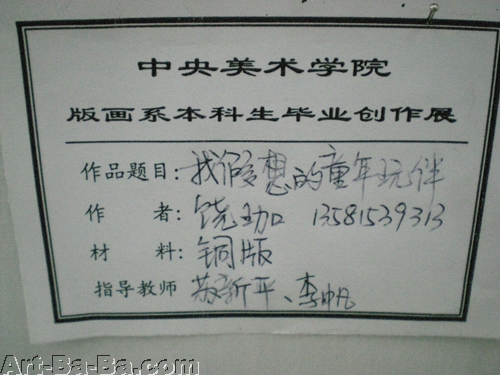 中央美术学院
版画系本科生毕业创作展
作品题目：我很想的童年玩伴
作 者：饶劲 13581539313
材 料：铜版
指导教师 苏新平、李帆
Art-Ba-Ba.com